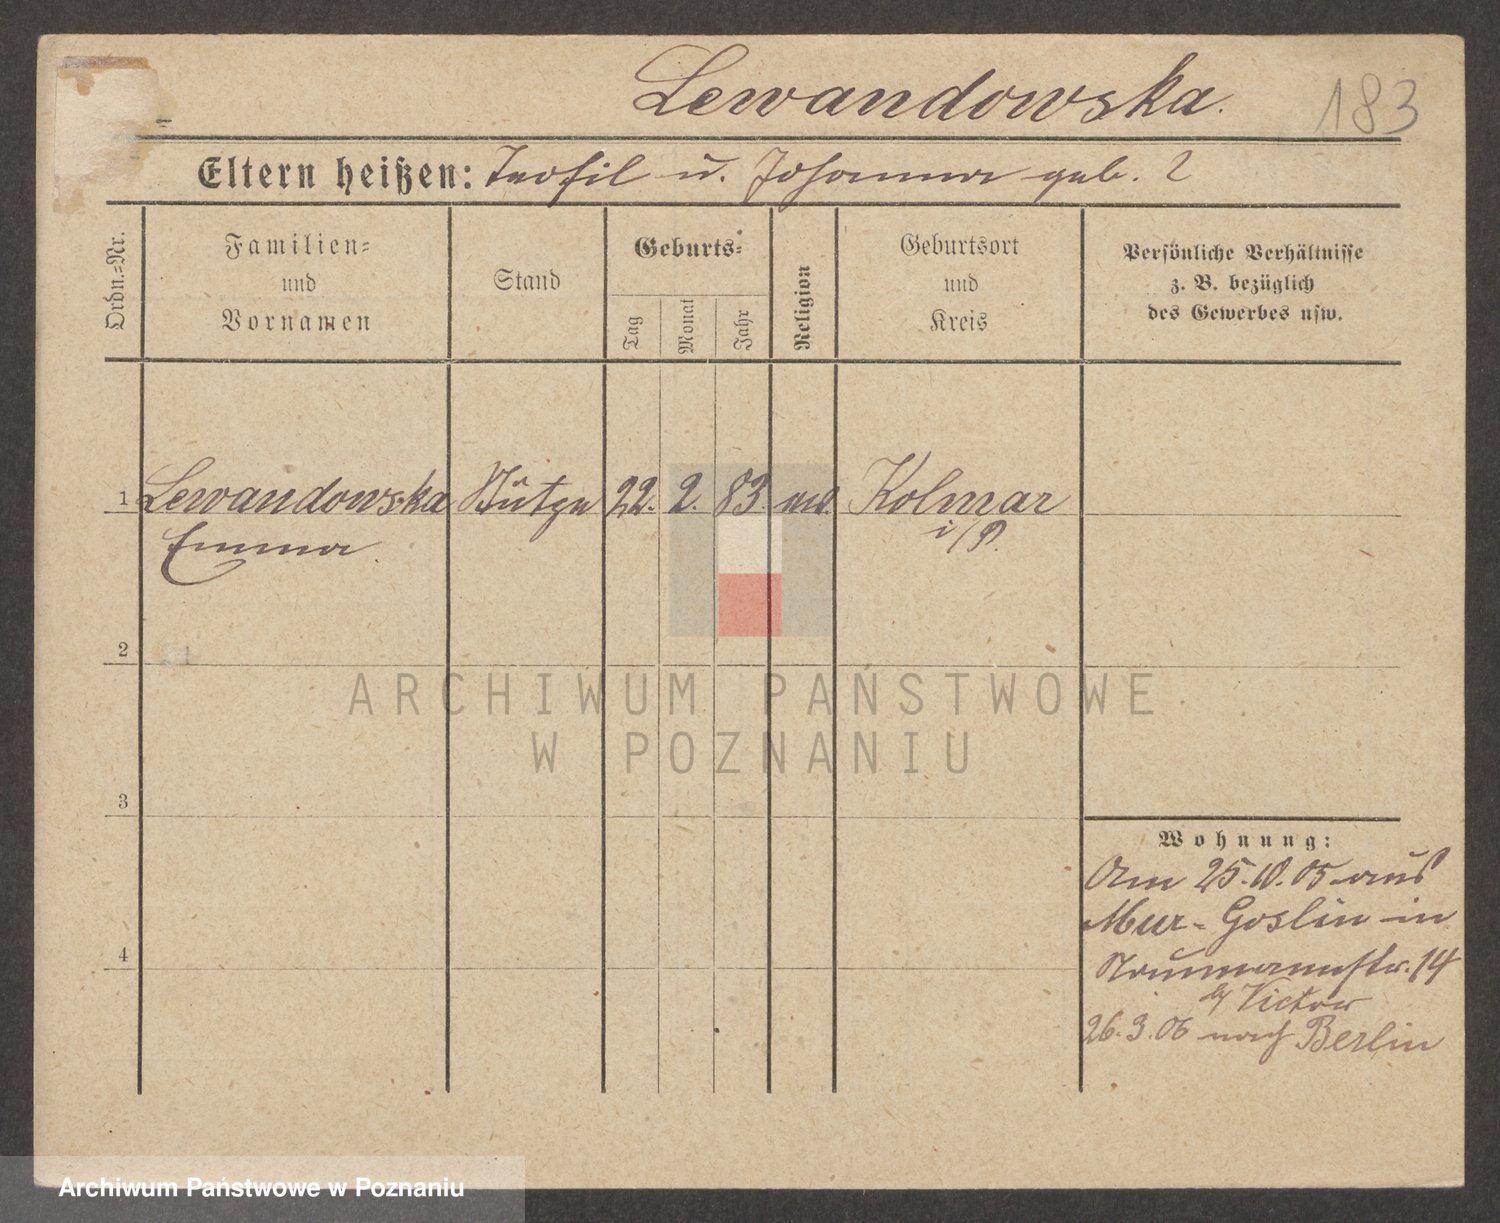 Lewandowska.
183
Eltern heißen: Teofil u. Johanna geb. ?
Ordn.=Nr.
Familien=
und
Vornamen
Stand
Geburts=
Tag
Monat
Jahr
Religion
Geburtsort
und
Kreis
Persönliche Verhältnisse
z. B. bezüglich
des Gewerbes usw.
1 Lewandowska Stütze 22. 2. 83. Kolmar
Emma i/P.
2
3
4
ARCHIWUM PAŃSTWOWE
W POZNANIU
Wohnung:
Am 25.10.05 aus
Mur-Goslin in
Naumannstr. 14
b/ Victor
26.3.06 nach Berlin
Archiwum Państwowe w Poznaniu